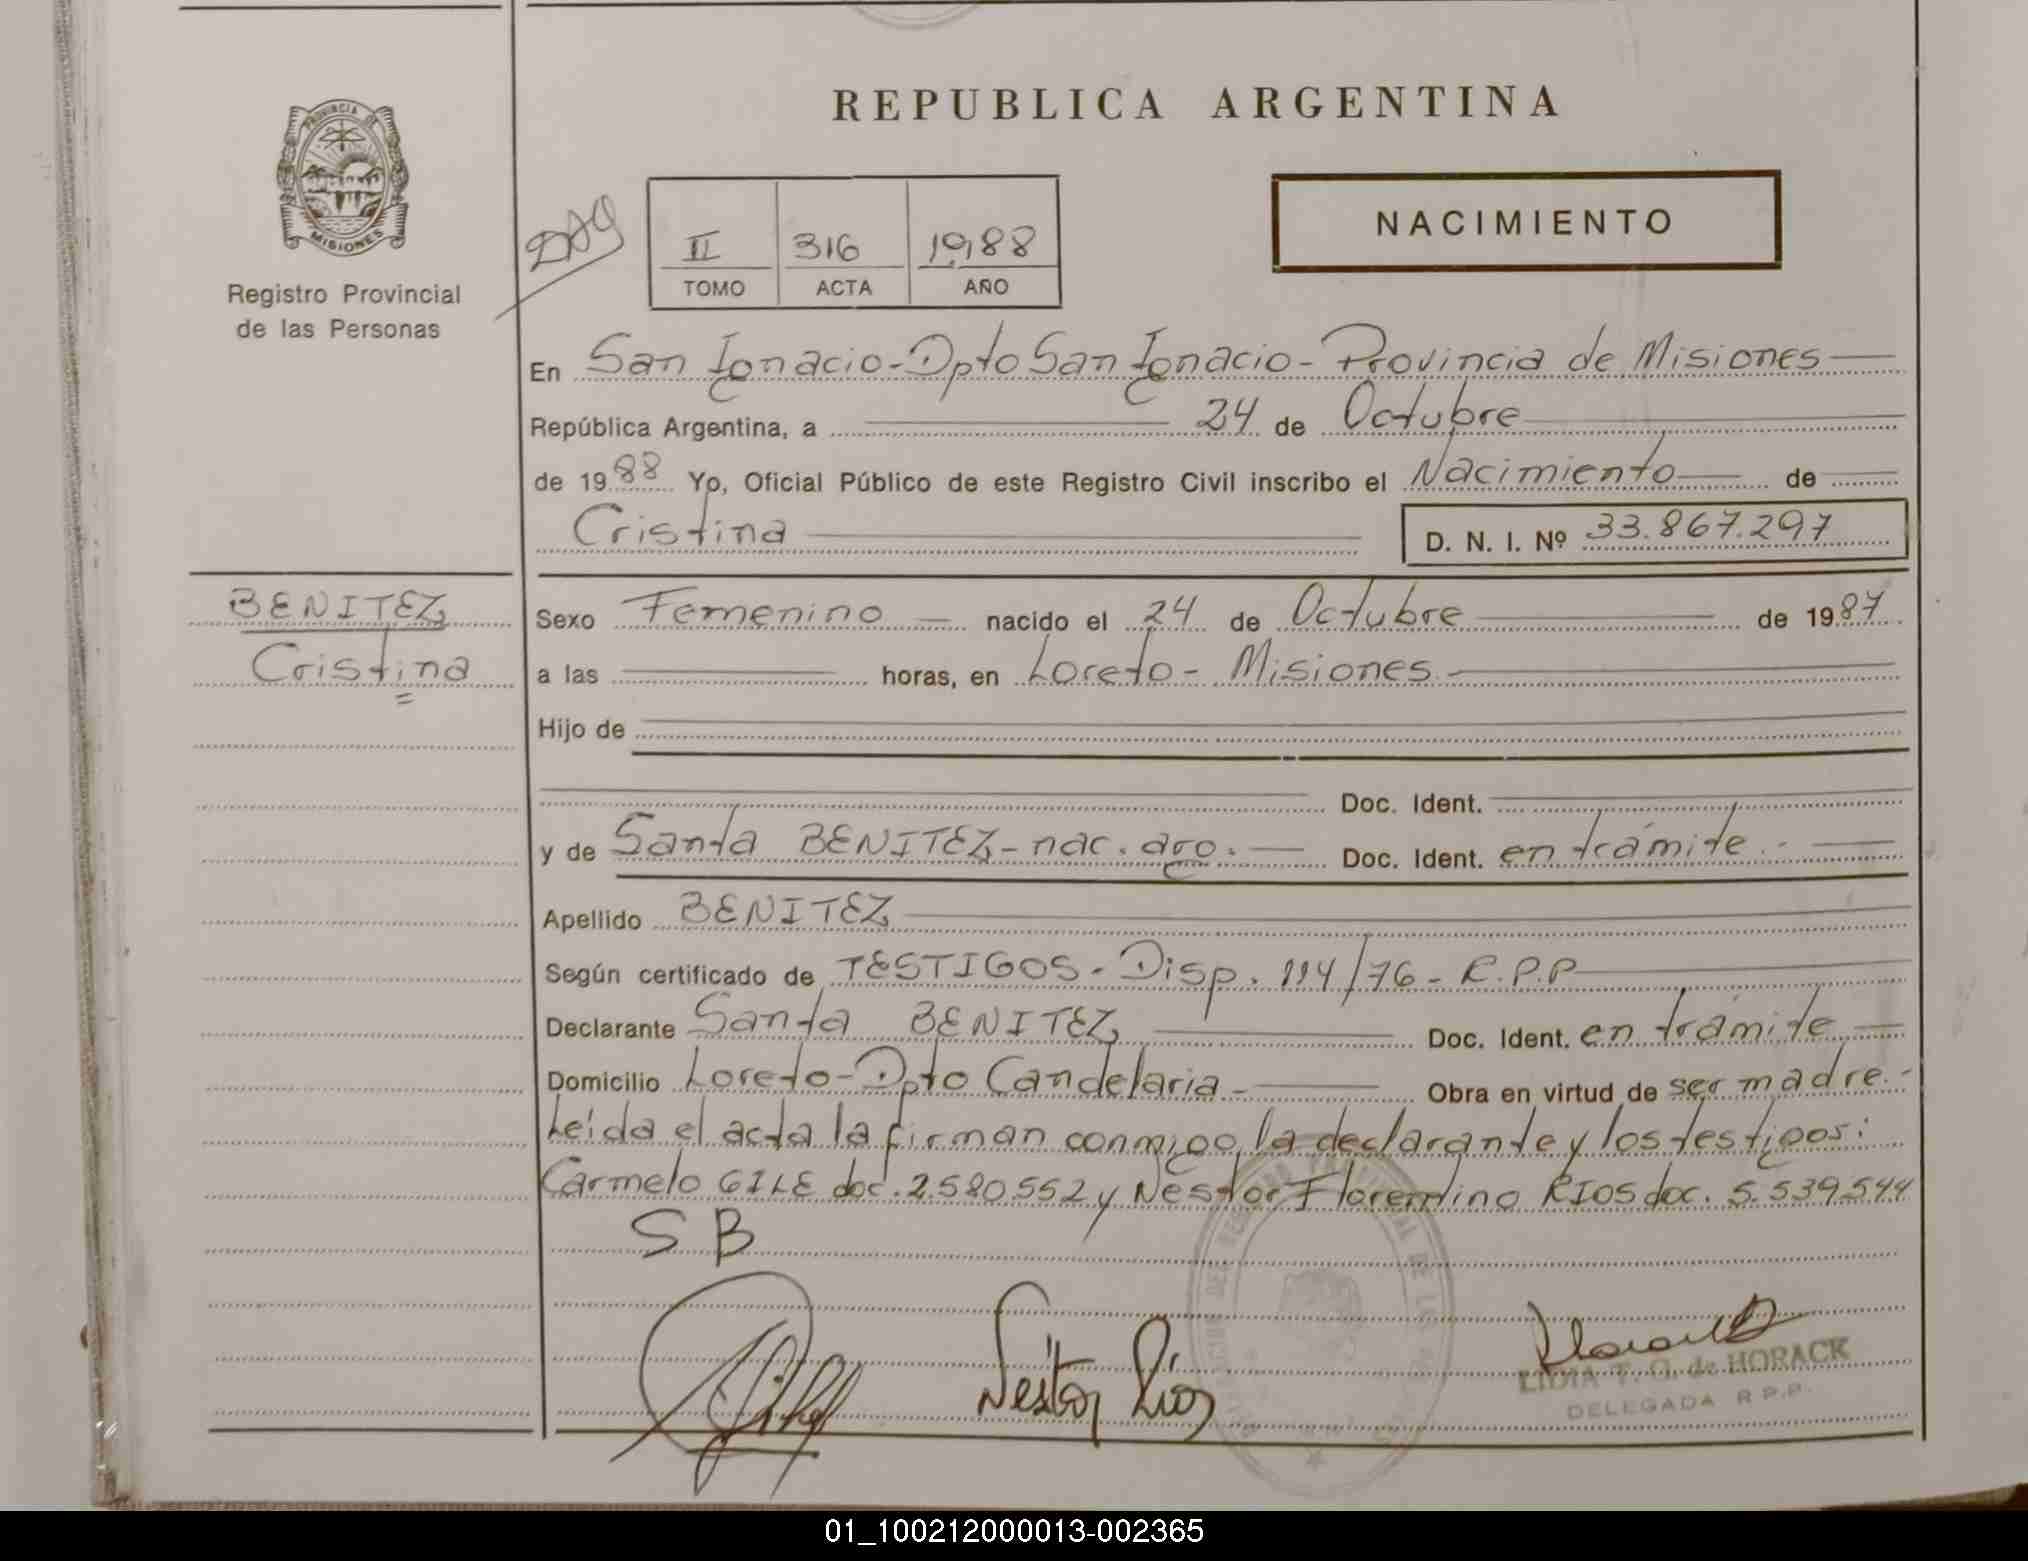 REPUBLICA ARGENTINA
PROVINCIA DE
MISIONES
Registro Provincial
de las Personas
II 316 1988
TOMO ACTA AÑO
NACIMIENTO
En San Ignacio - Dpto San Ignacio - Provincia de Misiones
República Argentina, a 24 de Octubre
de 1988 Yo, Oficial Público de este Registro Civil inscribo el Nacimiento de
Cristina D. N. I. Nº 33.867.297
BENITEZ
Cristina
Sexo Femenino nacido el 24 de Octubre de 1987
a las horas, en Loreto - Misiones
Hijo de
Doc. Ident.
y de Santa BENITEZ - nac. arg. Doc. Ident. en trámite.
Apellido BENITEZ
Según certificado de TESTIGOS - Disp. 114/76 - R.P.P
Declarante Santa BENITEZ Doc. Ident. en trámite
Domicilio Loreto - Dpto Candelaria Obra en virtud de ser madre.
Leída el acta la firman conmigo, la declarante y los testigos:
Carmelo GILE doc. 2.580.552 y Nestor Florentino RIOS doc. 5.539.544
S B
Nestor Rios
LIDIA T. G. de HORACK
DELEGADA R.P.P.
01_100212000013-002365